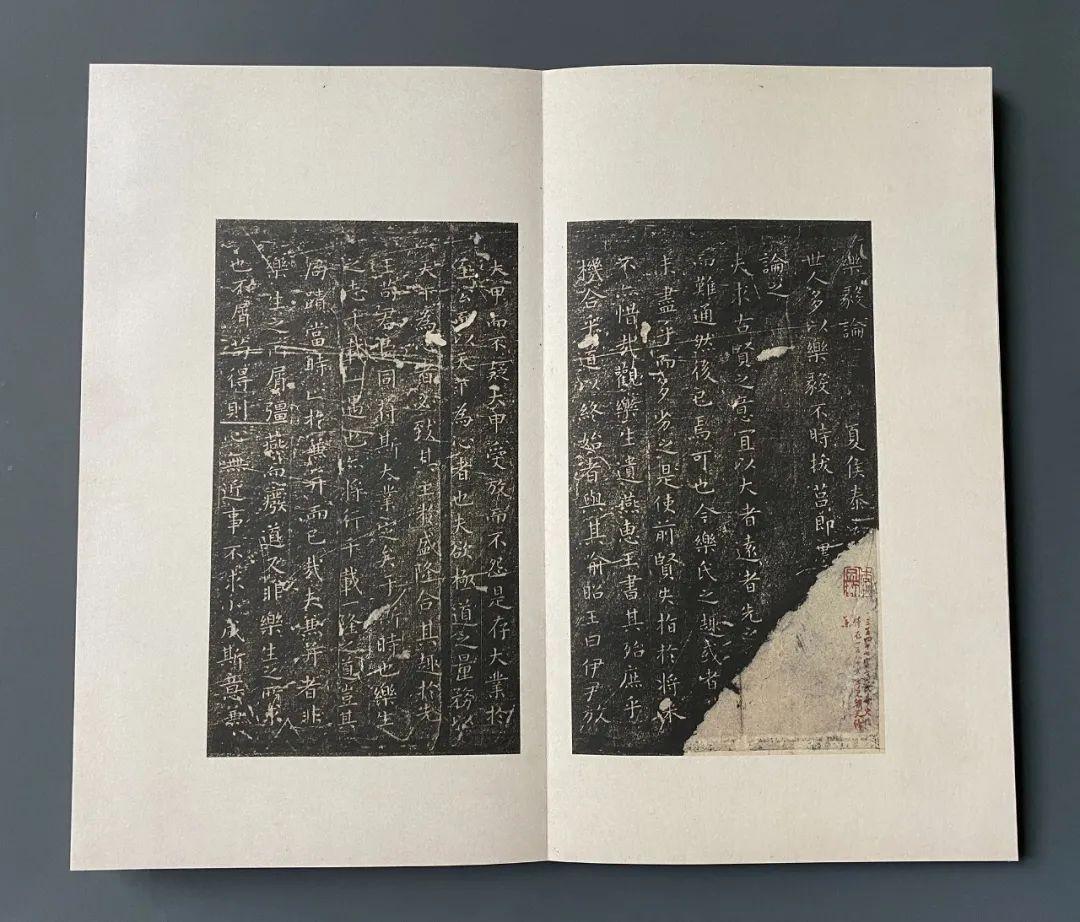 樂毅論 夏侯泰
世人多以樂毅不時拔莒即墨
論之
夫求古賢之意宜以大者遠者先之
而難通然後已焉可也今樂氏之趣或者
未盡乎而多劣之是使前賢失指於將來
不惜哉觀樂生遺燕惠王書其殆庶乎
機合乎道以終始者與其喻昭王曰伊尹放
大甲而不疑大甲受放而不怨是存大業於
至公而以天下為心者也夫欲極道之量務以
天下為心者必致其主於盛隆合其趣於先
王苟君臣同符斯大業定矣于斯時也樂生
之志千載一遇也亦將行千載一隆之道豈其
局蹟當時止於兼并而已哉夫兼并者非
樂生之所屑彊燕而廢道又非樂生之所求
也不屑苟得則心無近事不求小成斯意兼